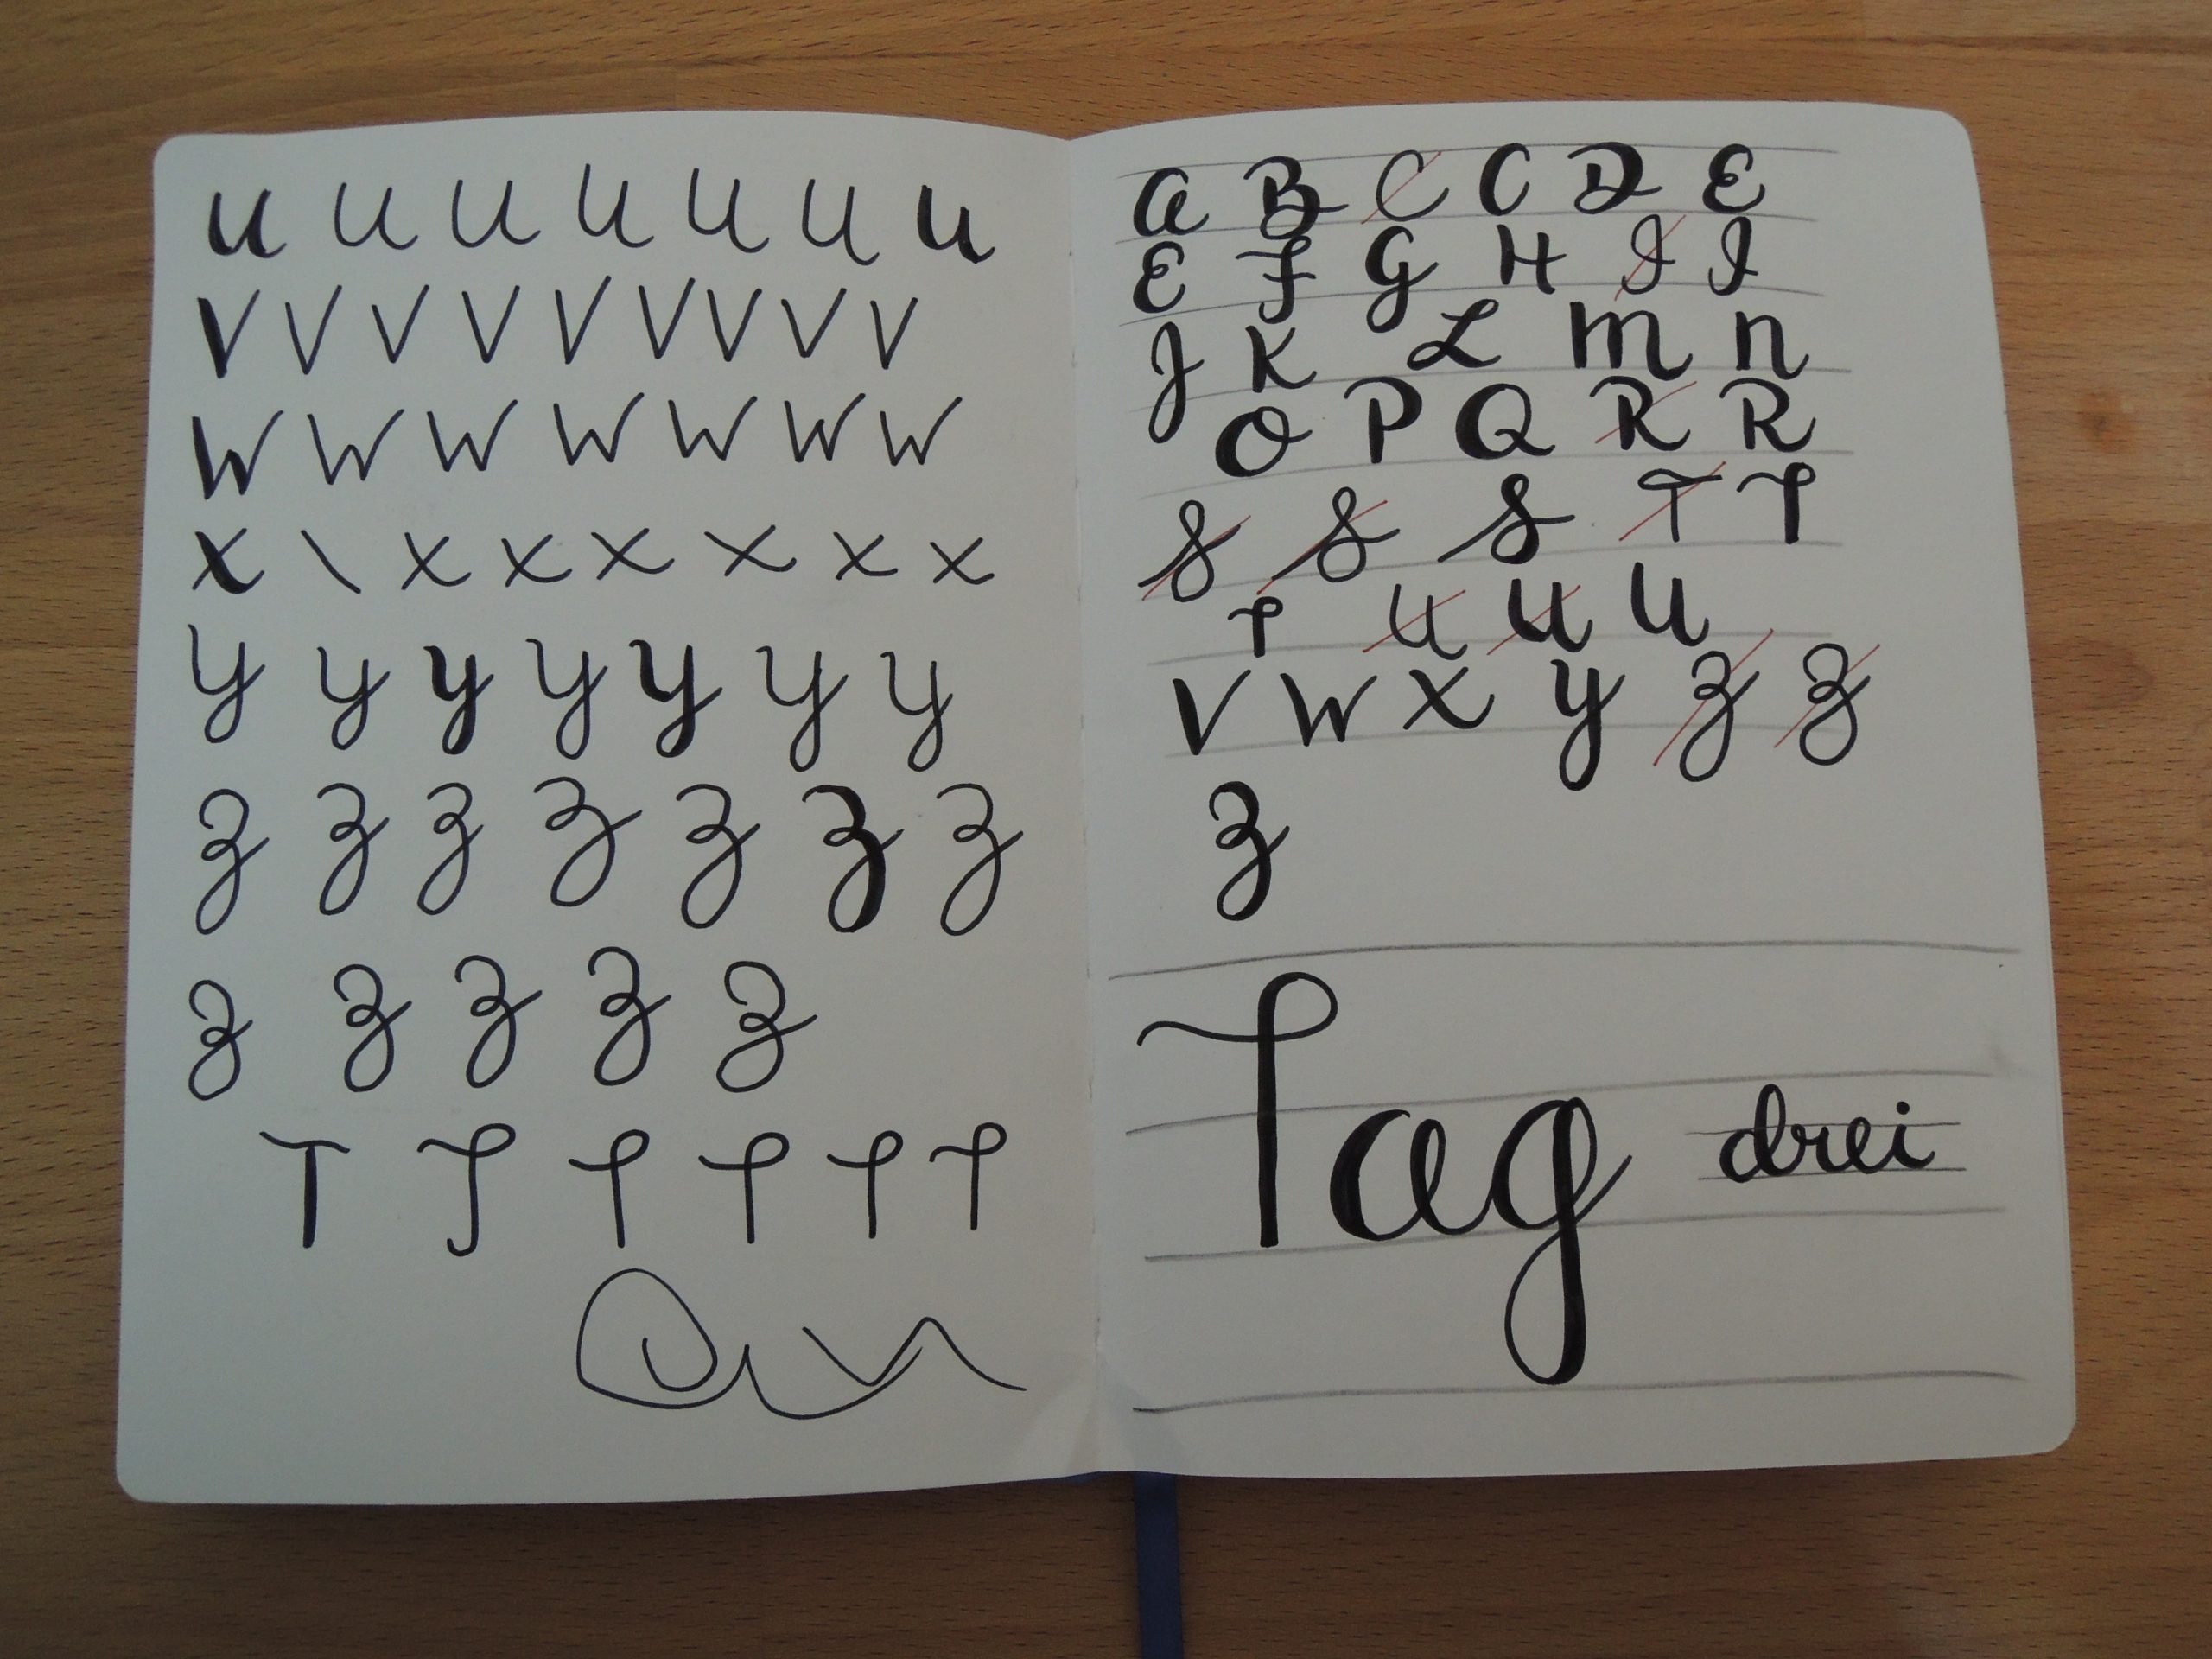 U U U U U U U
V V V V V V V V V
W W W W W W W
X \ X X X X X X
Y Y Y Y Y Y Y
Z Z Z Z Z Z Z
Z Z Z Z Z
T T T T T T
A B C C D E
E F G H I I
J K L M N
O P Q R R
S S S T T
T U U U
V W X Y Z Z
Z
Tag drei